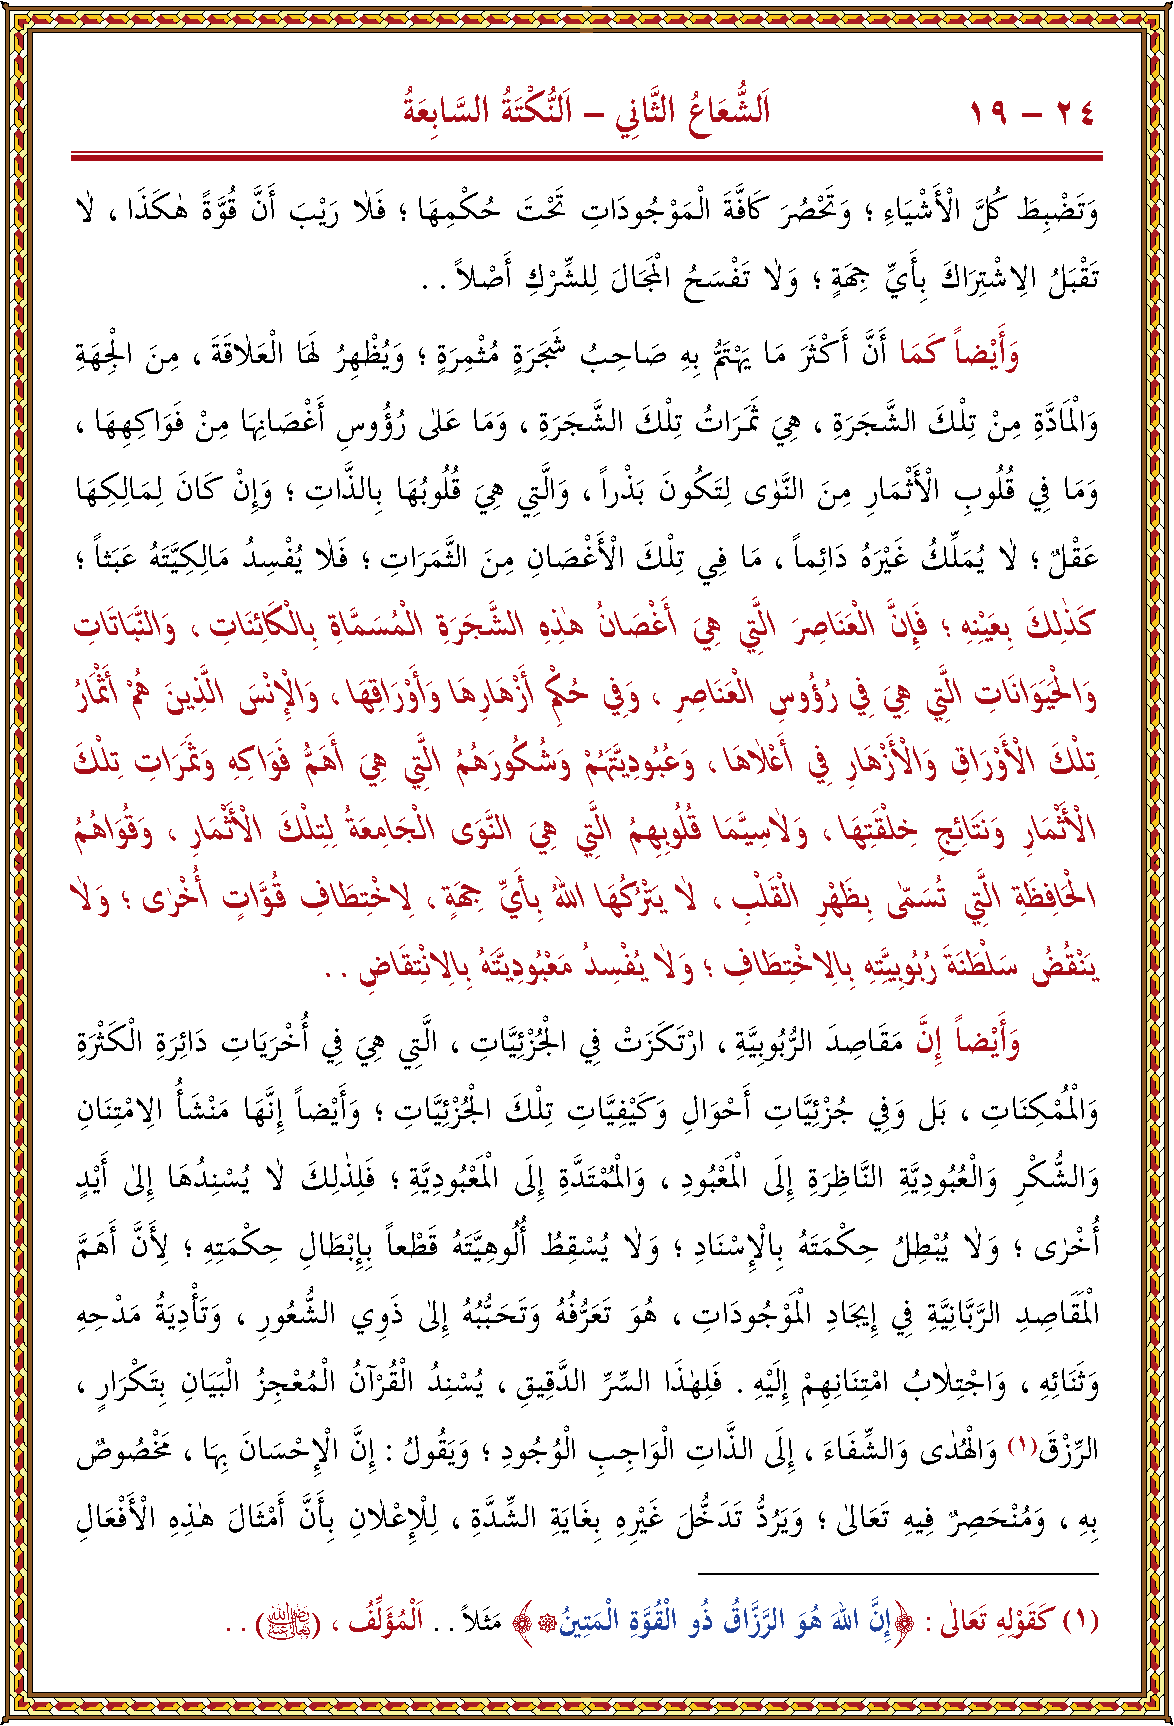 ٢٤ – ١٩ اَلشُّعَاعُ الثَّانِي – اَلنُّكْتَةُ السَّابِعَةُ
وَتَضْبِطَ كُلَّ الْأَشْيَاءِ ؛ وَتَحْصُرَ كَافَّةَ الْمَوْجُودَاتِ تَحْتَ حُكْمِهَا ؛ فَلَا رَيْبَ أَنَّ قُوَّةً هٰكَذَا ، لَا
تَقْبَلُ الِاشْتِرَاكَ بِأَيِّ جِهَةٍ ؛ وَلَا تَفْسَحُ الْمَجَالَ لِلشِّرْكِ أَصْلاً . .
وَأَيْضاً كَمَا أَنَّ أَكْثَرَ مَا يَهْتَمُّ بِهِ صَاحِبُ شَجَرَةٍ مُثْمِرَةٍ ؛ وَيُظْهِرُ لَهَا الْعَلَاقَةَ ، مِنَ الْجِهَةِ
وَالْمَادَّةِ مِنْ تِلْكَ الشَّجَرَةِ ، هِيَ ثَمَرَاتُ تِلْكَ الشَّجَرَةِ ، وَمَا عَلٰى رُؤُوسِ أَغْصَانِهَا مِنْ فَوَاكِهِهَا ،
وَمَا فِي قُلُوبِ الْأَثْمَارِ مِنَ النَّوٰى لِتَكُونَ بَذْراً ، وَالَّتِي هِيَ قُلُوبُهَا بِالذَّاتِ ؛ وَإِنْ كَانَ لِمَالِكِهَا
عَقْلٌ ؛ لَا يُمَلِّكُ غَيْرَهُ دَائِماً ، مَا فِي تِلْكَ الْأَغْصَانِ مِنَ الثَّمَرَاتِ ؛ فَلَا يُفْسِدُ مَالِكِيَّتَهُ عَبَثاً ؛
كَذٰلِكَ بِعَيْنِهِ ؛ فَإِنَّ الْعَنَاصِرَ الَّتِي هِيَ أَغْصَانُ هٰذِهِ الشَّجَرَةِ الْمُسَمَّاةِ بِالْكَائِنَاتِ ، وَالنَّبَاتَاتِ
وَالْحَيَوَانَاتِ الَّتِي هِيَ فِي رُؤُوسِ الْعَنَاصِرِ ، وَفِي حُكْمِ أَزْهَارِهَا وَأَوْرَاقِهَا ، وَالْإِنْسَ الَّذِينَ هُمْ أَثْمَارُ
تِلْكَ الْأَوْرَاقِ وَالْأَزْهَارِ فِي أَعْلَاهَا ، وَعُبُودِيَّتَهُمْ وَشُكُورَهُمُ الَّتِي هِيَ أَهَمُّ فَوَاكِهِ وَثَمَرَاتِ تِلْكَ
الْأَثْمَارِ وَنَتَائِجِ خِلْقَتِهَا ، وَلَاسِيَّمَا قُلُوبِهِمُ الَّتِي هِيَ النَّوَى الْجَامِعَةُ لِتِلْكَ الْأَثْمَارِ ، وَقُوَاهُمُ
الْحَافِظَةِ الَّتِي تُسَمّٰى بِظَهْرِ الْقَلْبِ ، لَا يَتْرُكُهَا اللهُ بِأَيِّ جِهَةٍ ، لِاخْتِطَافِ قُوَّاتٍ أُخْرٰى ؛ وَلَا
يَنْقُضُ سَلْطَنَةَ رُبُوبِيَّتِهِ بِالِاخْتِطَافِ ؛ وَلَا يُفْسِدُ مَعْبُودِيَّتَهُ بِالِانْتِقَاضِ . .
وَأَيْضاً إِنَّ مَقَاصِدَ الرُّبُوبِيَّةِ ، ارْتَكَزَتْ فِي الْجُزْئِيَّاتِ ، الَّتِي هِيَ فِي أُخْرَيَاتِ دَائِرَةِ الْكَثْرَةِ
وَالْمُمْكِنَاتِ ، بَلْ وَفِي جُزْئِيَّاتِ أَحْوَالِ وَكَيْفِيَّاتِ تِلْكَ الْجُزْئِيَّاتِ ؛ وَأَيْضاً إِنَّهَا مَنْشَأُ الِامْتِنَانِ
وَالشُّكْرِ وَالْعُبُودِيَّةِ النَّاظِرَةِ إِلَى الْمَعْبُودِ ، وَالْمُمْتَدَّةِ إِلَى الْمَعْبُودِيَّةِ ؛ فَلِذٰلِكَ لَا يُسْنِدُهَا إِلٰى أَيْدٍ
أُخْرٰى ؛ وَلَا يُبْطِلُ حِكْمَتَهُ بِالْإِسْنَادِ ؛ وَلَا يُسْقِطُ أُلُوهِيَّتَهُ قَطْعاً بِإِبْطَالِ حِكْمَتِهِ ؛ لِأَنَّ أَهَمَّ
الْمَقَاصِدِ الرَّبَّانِيَّةِ فِي إِيجَادِ الْمَوْجُودَاتِ ، هُوَ تَعَرُّفُهُ وَتَحَبُّبُهُ إِلٰى ذَوِي الشُّعُورِ ، وَتَأْدِيَةُ مَدْحِهِ
وَثَنَائِهِ ، وَاجْتِلَابُ امْتِنَانِهِمْ إِلَيْهِ . فَلِهٰذَا السِّرِّ الدَّقِيقِ ، يُسْنِدُ الْقُرْآنُ الْمُعْجِزُ الْبَيَانِ بِتَكْرَارٍ ،
الرِّزْقَ(١) وَالْهُدٰى وَالشِّفَاءَ ، إِلَى الذَّاتِ الْوَاجِبِ الْوُجُودِ ؛ وَيَقُولُ : إِنَّ الْإِحْسَانَ بِهَا ، مَخْصُوصٌ
بِهِ ، وَمُنْحَصِرٌ فِيهِ تَعَالٰى ؛ وَيَرُدُّ تَدَخُّلَ غَيْرِهِ بِغَايَةِ الشِّدَّةِ ، لِلْإِعْلَانِ بِأَنَّ أَمْثَالَ هٰذِهِ الْأَفْعَالِ
(١) كَقَوْلِهِ تَعَالٰى : ﴿إِنَّ اللهَ هُوَ الرَّزَّاقُ ذُو الْقُوَّةِ الْمَتِينُ﴾ مَثَلاً . . اَلْمُؤَلِّفُ ، (ﷺ) . .